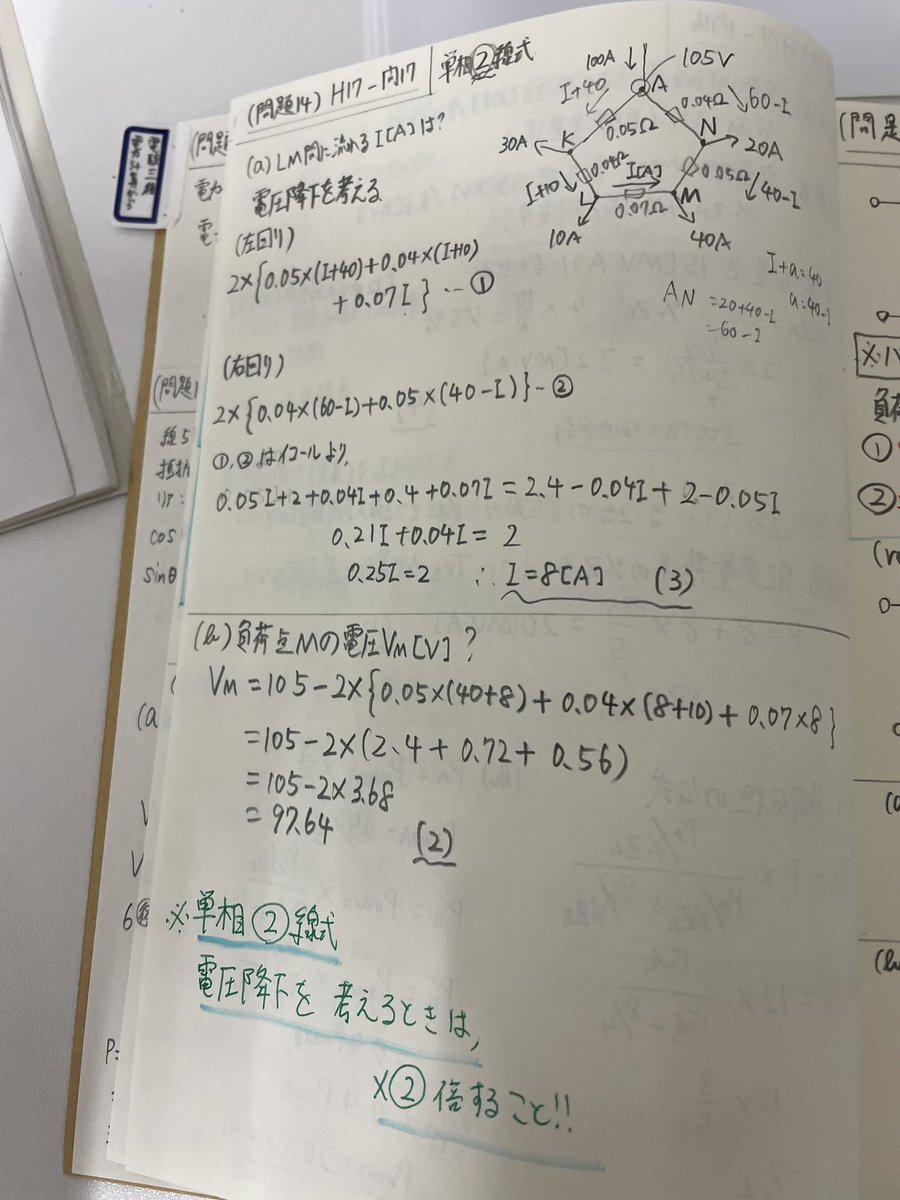 (問題14) H17-問17 単相②線式
(a) LM間に流れる I[A]は?
電圧降下を考える
(左回り)
2×{0.05×(I+40)+0.04×(I+10)
+0.07I} … ①
(右回り)
2×{0.04×(60-I)+0.05×(40-I)} - ②
①,②はイコールより,
0.05I+2+0.04I+0.4+0.07I = 2.4-0.04I+2-0.05I
0.21I+0.04I = 2
0.25I=2 ∴ I=8[A] (3)
100A
105V
A
I+40
0.05Ω
0.04Ω
60-I
30A
K
N
20A
0.04Ω
I+10
I[A]
0.05Ω
40-I
L
M
0.07Ω
10A
40A
I+a=40
a=40-I
AN =20+40-I
=60-I
(b) 負荷点Mの電圧VM[V]?
VM =105-2×{0.05×(40+8)+0.04×(8+10)+0.07×8}
=105-2×(2.4+0.72+0.56)
=105-2×3.68
=97.64 (2)
※単相②線式
電圧降下を考えるときは,
×②倍すること!!
(問題
電力
電
電験三種
(問題1
線
抵抗
cos
sinθ
(a
V
V
P=
(問題
※
負荷
①
②